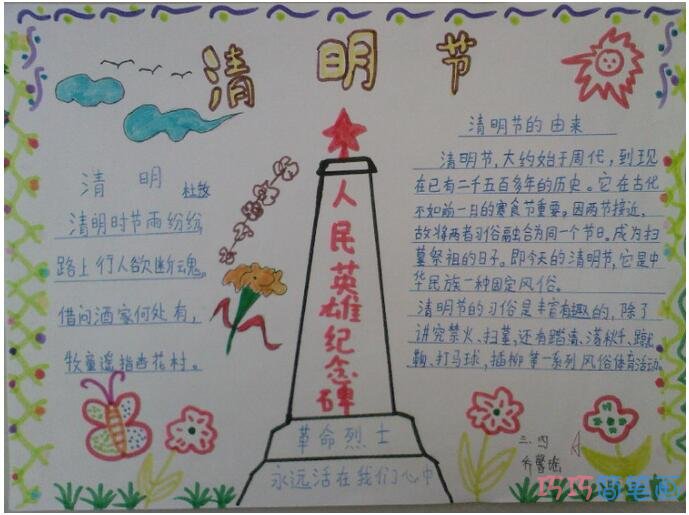 清明节
清明 杜牧
清明时节雨纷纷
路上行人欲断魂。
借问酒家何处有,
牧童遥指杏花村。
人民英雄纪念碑
革命烈士
永远活在我们心中
清明节的由来
清明节,大约始于周代,到现
在已有二千五百多年的历史。它在古代
不如前一月的寒食节重要。因两节接近,
故将两者习俗融合为同一个节日。成为扫
墓祭祖的日子。即今天的清明节,它是中
华民族一种固定风俗。
清明节的习俗是丰富有趣的,除了
讲究禁火、扫墓,还有踏青、荡秋千、蹴
鞠、打马球,插柳等一系列风俗体育活动。
三、四
巧巧简笔画